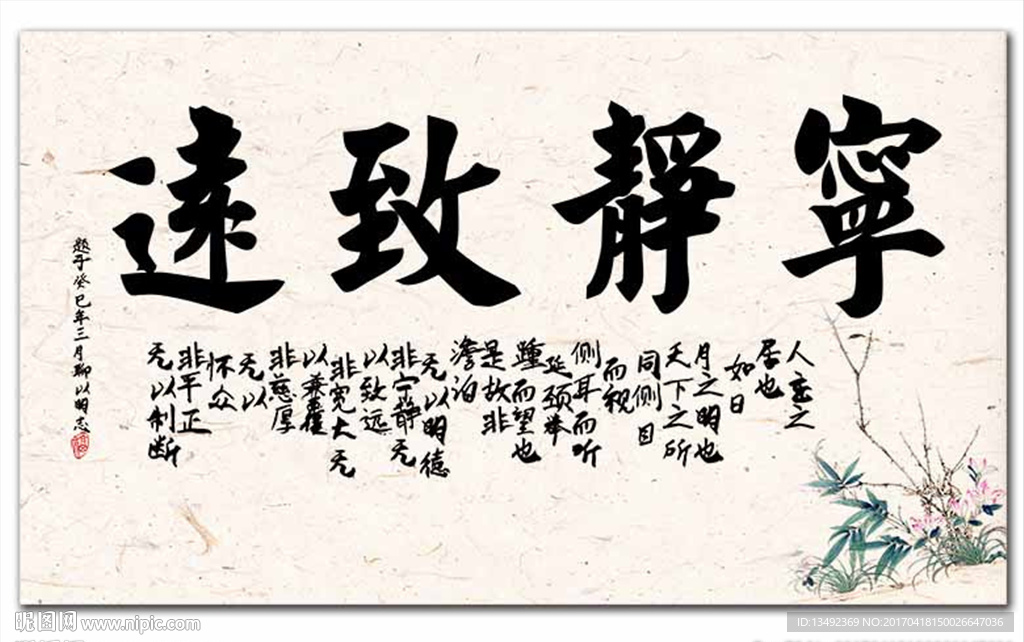 寧靜致遠
人主之
居也
如日
月之明也
天下之所
同侧目
而视
侧耳而听
延颈举
踵而望也
是故非
澹泊
无以明德
非宁静无
以致远
非宽大无
以兼覆
非慈厚
无以
怀众
非平正
无以制断
题于癸巳年三月聊以明志
昵图网 www.nipic.com
ID:13492369 NO:20170418150026647036